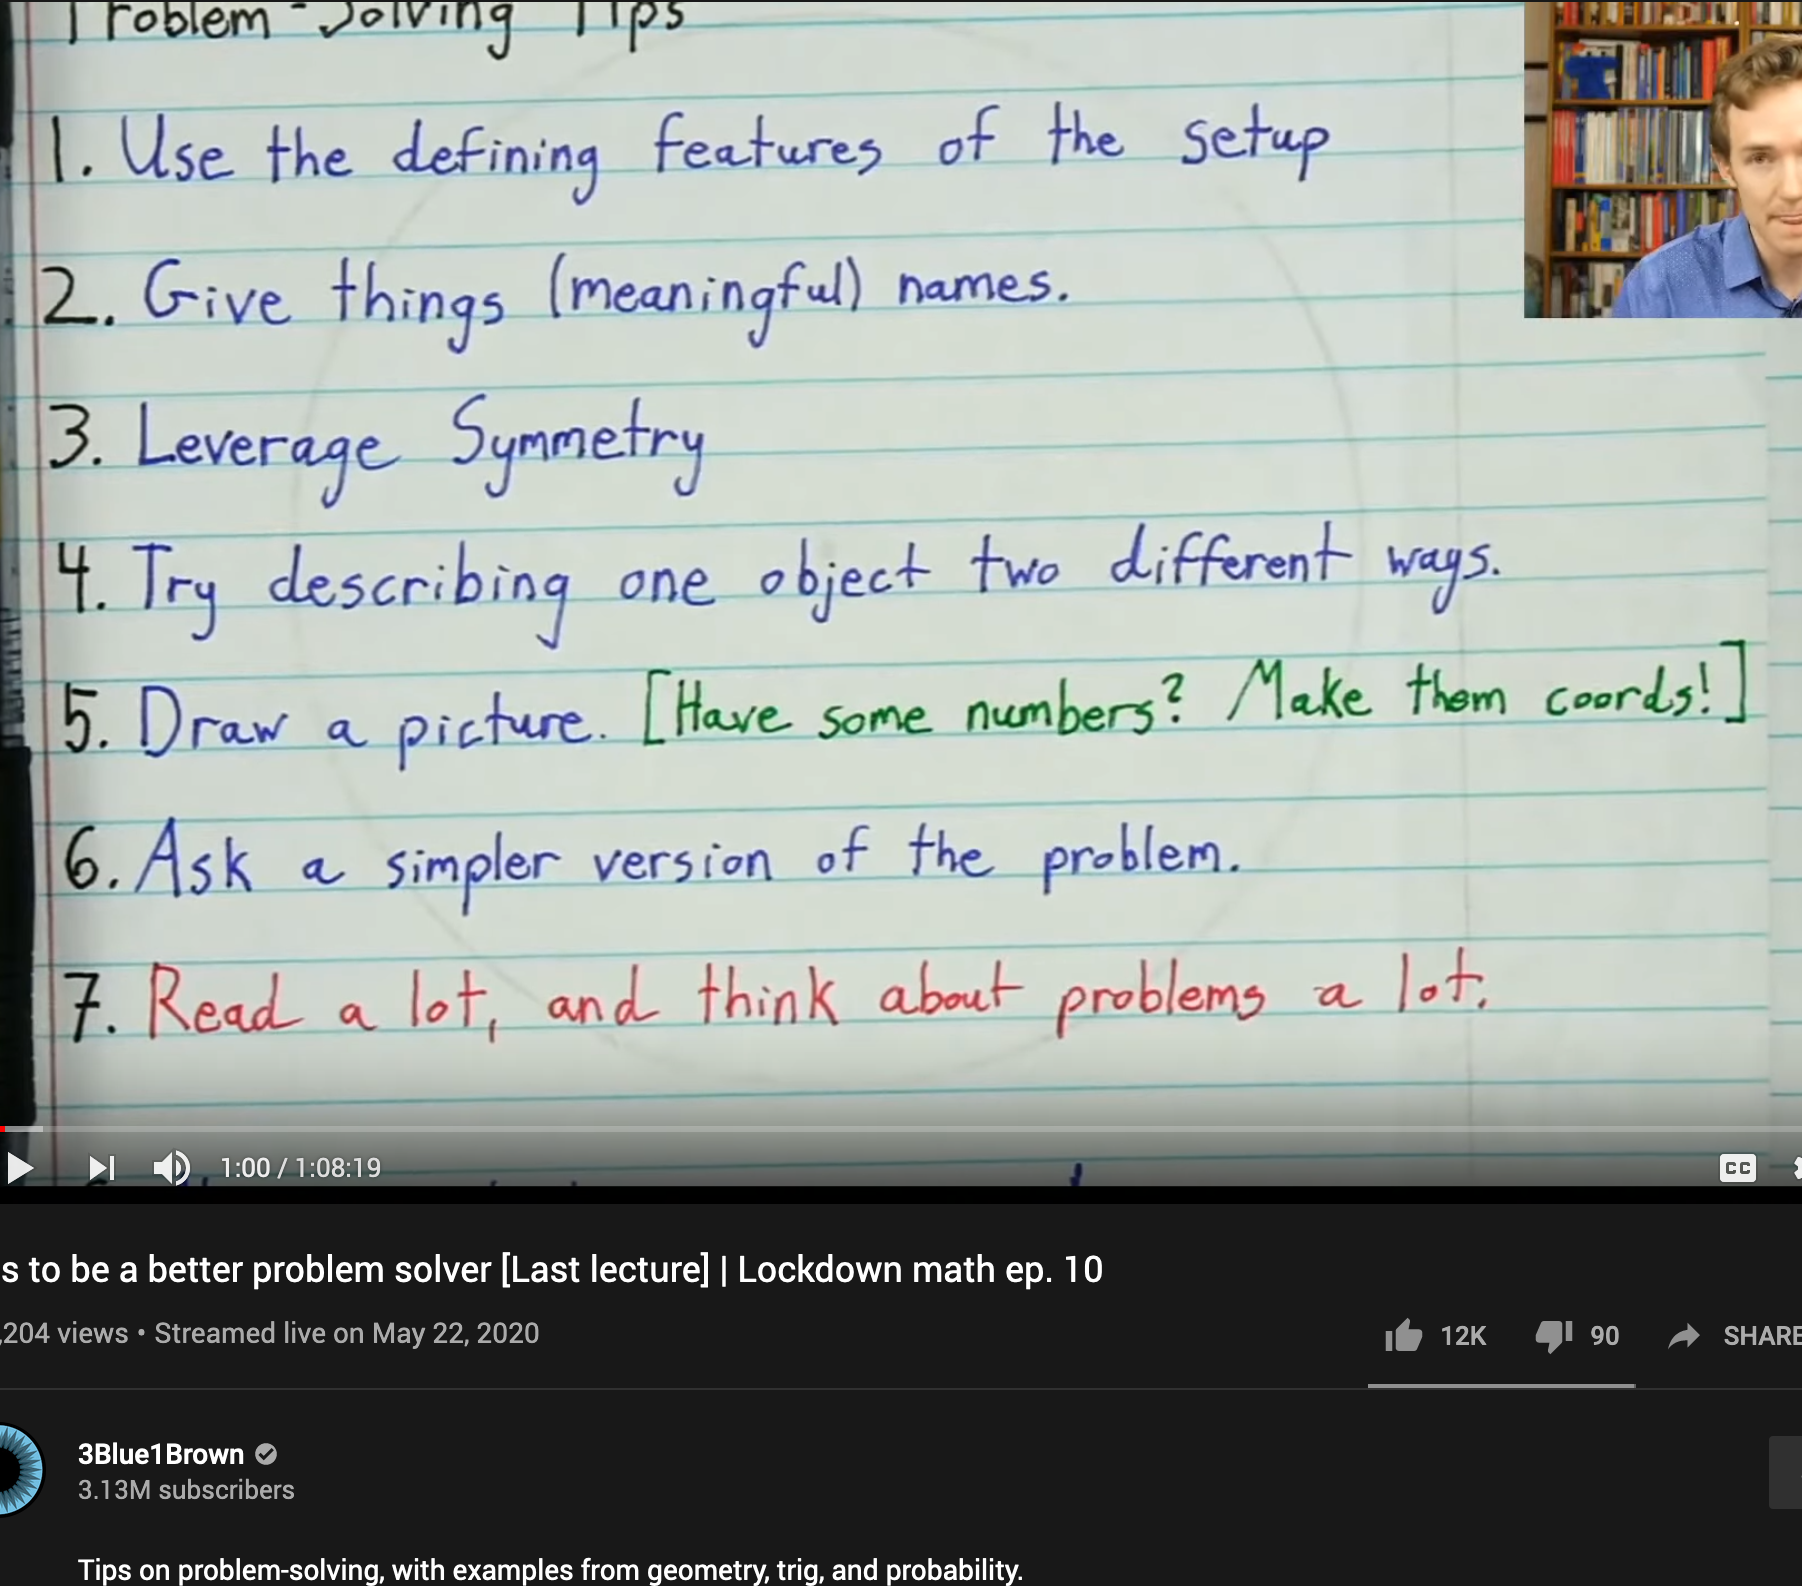 Problem-Solving Tips
1. Use the defining features of the setup
2. Give things (meaningful) names.
3. Leverage Symmetry
4. Try describing one object two different ways.
5. Draw a picture. [Have some numbers? Make them coords!]
6. Ask a simpler version of the problem.
7. Read a lot, and think about problems a lot.
1:00 / 1:08:19
CC
s to be a better problem solver [Last lecture] | Lockdown math ep. 10
,204 views • Streamed live on May 22, 2020
12K 90 SHARE
3Blue1Brown
3.13M subscribers
Tips on problem-solving, with examples from geometry, trig, and probability.